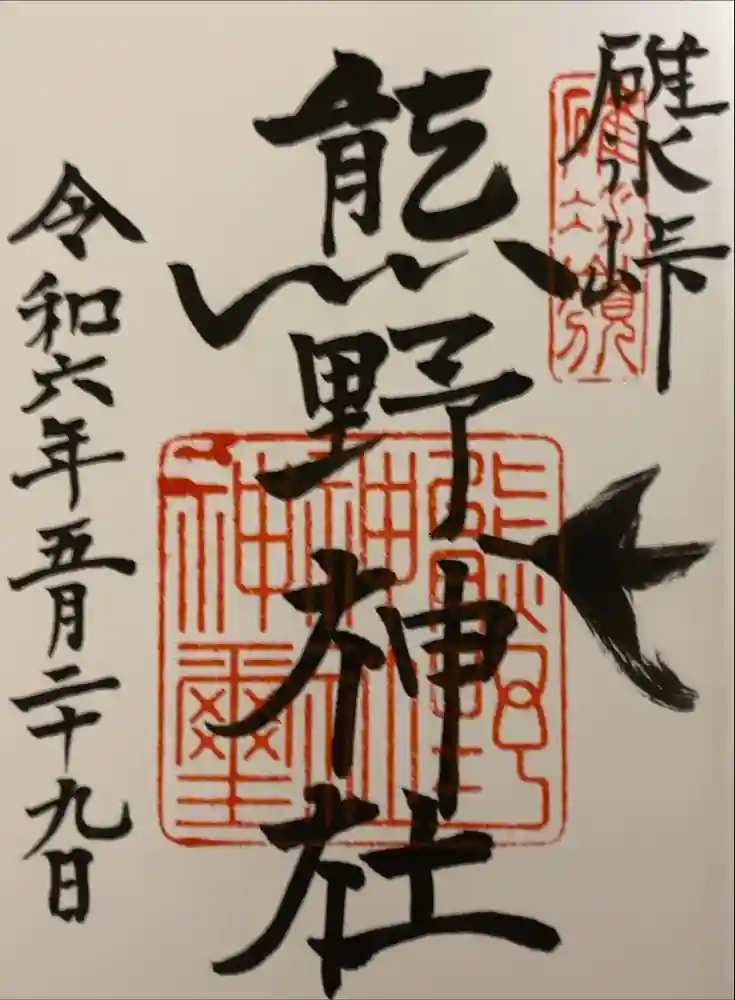 碓氷峠
熊野神社
令和六年五月二十九日
碓氷嶺
熊野
神社
神璽